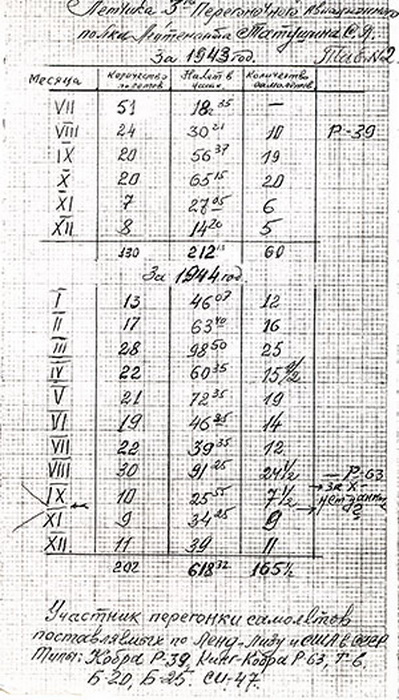 Летчика 3го Перегоночного Авиационного
полка Лейтенанта Татушина С.Я.
За 1943 год. Таб. №2.
Месяца Количество полетов Налет в часах Количество самолетов
VII 51 18 35 —
VIII 24 30 21 10 Р-39
IX 20 56 37 19
X 20 65 15 20
XI 7 27 05 6
XII 8 14 20 5
130 212 13 60
За 1944 год.
I 13 46 07 12
II 17 63 40 16
III 28 98 50 25
IV 22 60 35 15 1/2
V 21 72 35 19
VI 19 46 25 14
VII 22 39 35 12
VIII 30 91 25 24 1/2 — Р-63
IX 10 25 55 7 1/2 → за X - нет данных ?
XI 9 34 25 9
XII 11 39 11
202 618 32 165 1/2
Участник перегонки самолетов
поставлявмых по Ленд-Лизу и США в СССР
Типы: Кобра Р-39, Кинг-Кобра Р 63, Т-6,
Б-20, Б-25. СИ-47.